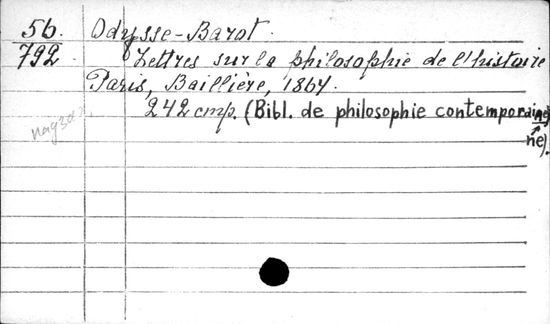 56. Odysse-Barot.
792. Lettres sur la philosophie de l'histoire
Paris, Baillière, 1864.
242 стр. (Bibl. de philosophie contemporaine)
ne).